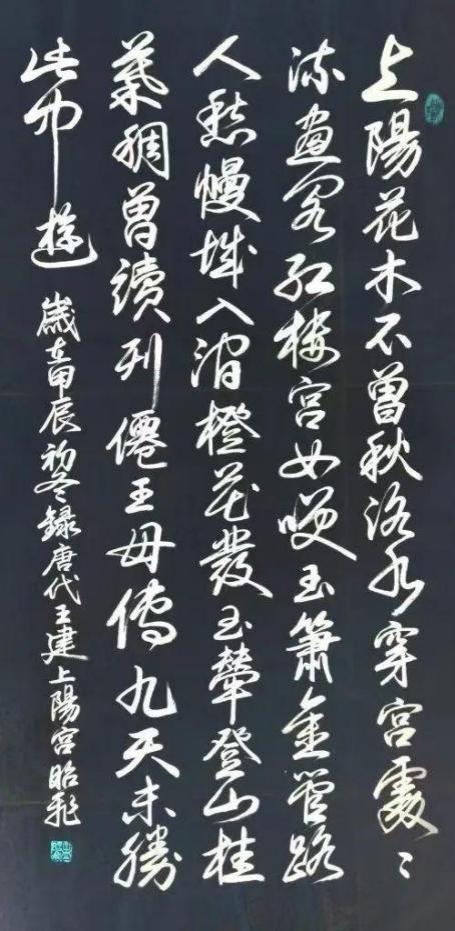 上陽花木不曾秋洛水穿宮處〻
流畫閣紅樓宮女咲玉簫金管路
人愁幔城入澗橙花發玉輦登山桂
葉稠曾讀列僊王母傳九天未勝
此中遊 歲在甲辰初冬錄唐代王建上陽宮昭